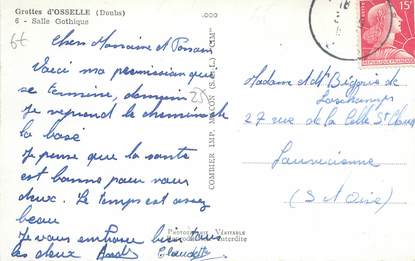 Grottes d'OSSELLE (Doubs)
6 - Salle Gothique
Chers Monsieur et
Voici ma permission qui
se termine, demain
je reprend le chemin de
la base
Je pense que la santé
est bonne pour vous
deux. Le temps est assez
beau
Je vous embrasse bien tous
les deux Claudette
COMBIER IMP. MACON (S.-&-L.) "CIM"
PHOTOGRAPHIE VÉRITABLE
Reproduction interdite
15F
Madame et Mr
27 rue de la Celle St Cloud
Louvecienne
(S et Oise)